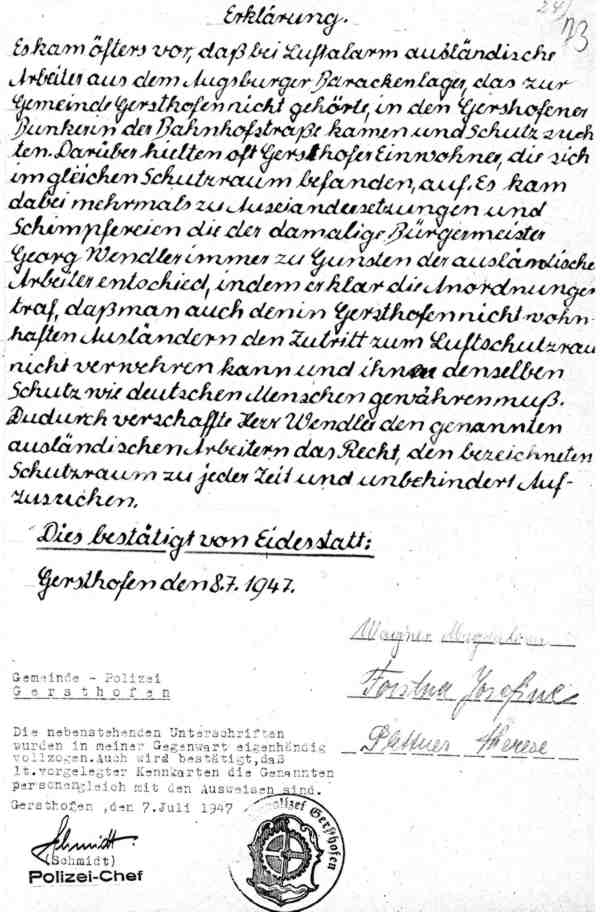 24)
73
Erklärung.
Es kam öfters vor, daß bei Luftalarm ausländische
Arbeiter aus dem Augsburger Barackenlager, das zur
Gemeinde Gersthofen nicht gehörte, in den Gersthofener
Bunker in der Bahnhofstraße kamen und Schutz such
ten. Darüber hielten oft Gersthofer Einwohner, die sich
im gleichen Schutzraum befanden, auf. Es kam
dabei mehrmals zu Auseiandersetzungen und
Schimpfereien die der damalige Bürgermeister
Georg Wendler immer zu Gunsten der ausländische
Arbeiter entschied, indem er klar die Anordnungen
traf, daß man auch den in Gersthofen nicht wohn-
haften Ausländern den Zutritt zum Luftschutzrau
nicht verwehren kann und ihnen denselben
Schutz wie deutschen Menschen gewähren muß.
Dudurch verschaffte Herr Wendler den genannten
ausländischen Arbeitern das Recht, den bezeichneten
Schutzraum zu jeder Zeit und unbehindert Auf-
zusuchen.
Dies bestätigt von Eidesstatt:
Gersthofen den 8.7. 1947.
Wagner Magdalena
Forstner Josefine
Plettner Therese
Gemeinde - Polizei
Gersthofen
Die nebenstehenden Unterschriften
wurden in meiner Gegenwart eigenhändig
vollzogen. Auch wird bestätigt, daß
lt. vorgelegter Kennkarten die Genannten
personengleich mit den Ausweisen sind.
Gersthofen ,den 7. Juli 1947
Schmidt
(Schmidt)
Polizei-Chef
polizei Gersthofen